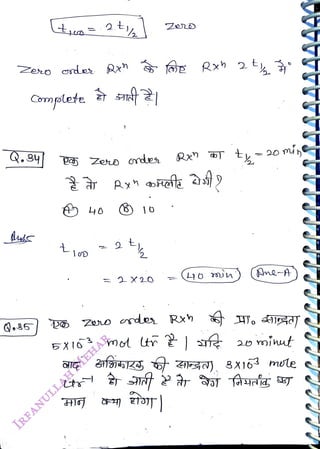 t₁₀₀ = 2 t½ Zero
Zero order Rxⁿ के लिए Rxⁿ 2 t½ में
Complete हो जाती है|
Q.34 एक Zero order Rxⁿ का t½ = 20 min
है तो Rxⁿ कम्पलीट होगी?
Ⓐ 40 Ⓑ 10
Ans t₁₀₀ = 2 t½
= 2 × 20 = 40 min Ans-A
Q.35 एक Zero order Rxⁿ की प्रा० सान्द्रता
5×10⁻³ mol ltr है | यदि 20 minut
बाद अभिकारक की सान्द्रता 3×10⁻³ mole
ltr⁻¹ हो जाती है तो वेग नियतांक का
मान क्या होगा|
IRFANULLAH MEHAR